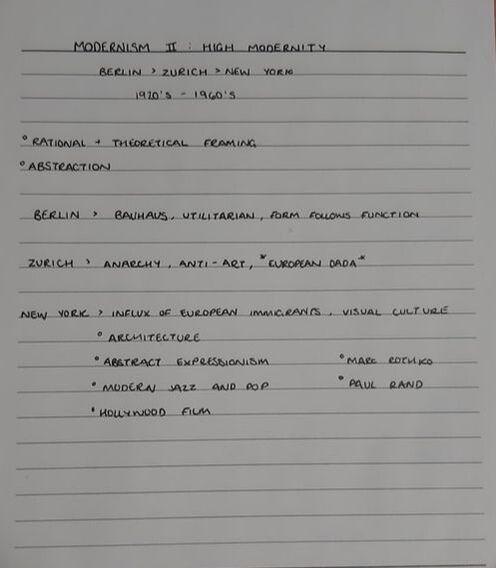 MODERNISM II : HIGH MODERNITY
BERLIN > ZURICH > NEW YORK
1920'S - 1960'S
° RATIONAL + THEORETICAL FRAMING
° ABSTRACTION
BERLIN > BAUHAUS, UTILITARIAN, FORM FOLLOWS FUNCTION
ZURICH > ANARCHY, ANTI-ART, *EUROPEAN DADA*
NEW YORK > INFLUX OF EUROPEAN IMMIGRANTS, VISUAL CULTURE
° ARCHITECTURE
° ABSTRACT EXPRESSIONISM ° MARC ROTHKO
° MODERN JAZZ AND POP ° PAUL RAND
° HOLLYWOOD FILM